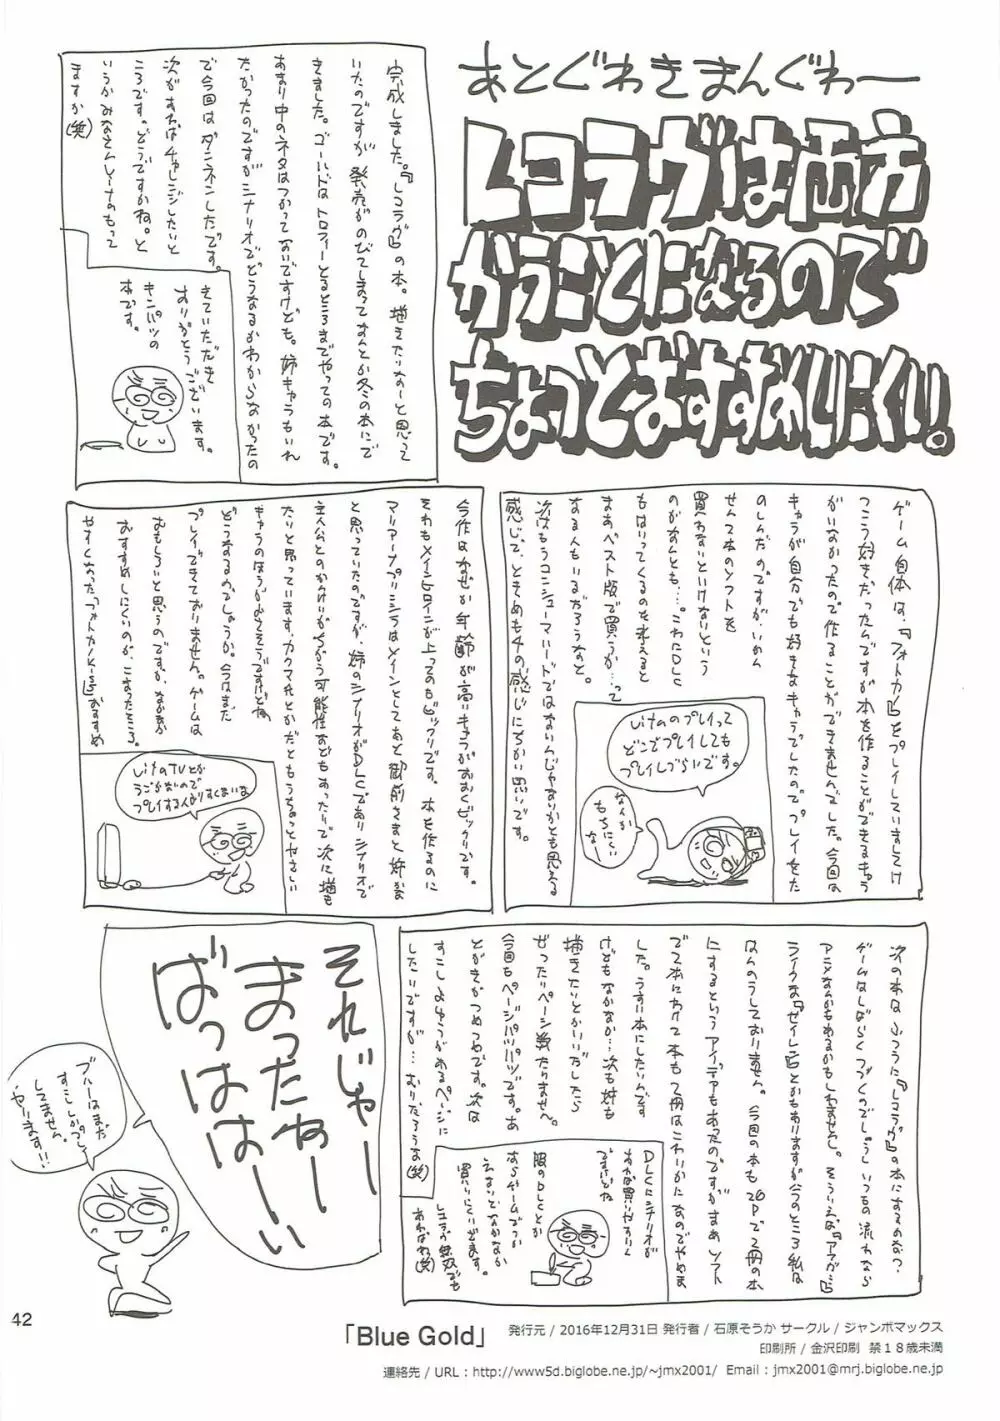 あとぐわきまんぐわー
レコラヴは両方
かうことになるので
ちょっとおすすめしにくい。
完成しました。『レコラヴ』の本。描きたいなーと思って
いたのですが 発売がのびてしまってなんとか冬の本にで
きました。ゴールドはトロフィーとるところまでやっての本です。
あまり中のネタはつかってないですけども。姉キャラもいれ
たかったのですがシナリオでどうなるかわからなかったの
で今回はダンネンしたです。
次があればチャレンジしたいと
ころです。どうですかね。と
いうかみなさんレーナのもって
ますか(笑)
さていただき
ありがとうございます。
キンパツの
本です。
ゲーム自体は、『フォトカノ』をプレイしていましてけ
っこう好きだったんですが本を作ることができるキャラ
がいなかったので作ることができませんでした。今回は
キャラが自分でも好きなキャラでしたのでプレイをた
のしんだのですが、いかん
せん2本のソフトを
買わないといけないという
のがなんとも…。これにDLC
もはいってくるのを考えると
まあベスト版で買うか…って
なる人もいるだろうなと。
次はもうコンシューマハードではないんじゃないかとも思える
感じで、ときめも4の感じにちかい思いです。
Vitaのプレイって
どこでプレイしても
プレイしづらいです。
なんか
もちにくい
なー
今作はなぜか年齢が高いキャラがおおくビックリです。
それもメインヒロインが上ってのもビックリです。本を作るのに
マリアーナプリシラはメインとしてあと御前さまと姉か
と思っていたのですが、姉のシナリオがDLCであり シナリオで
主人公とのかけいがちがう可能性などもあったりで次に描も
たりと思っています。カクマ氏とかだともうちょっとやさしい
キャラのほうがよさそうですけどね。
どうなるのでしょうか。今はまだ
プレイできておりません。ゲームは
おもしろいと思うのですが、なかなか
おすすめしにくいのが、こまったところ。
やすくなった『フォトカノKiss』おすすめ
VitaTVとか
うごかないので
プレイする人よりすくないな
次の本は ふつうに『レコラヴ』の本にするのかな?
ゲームはしばらくつづくのでしょうし いつもの流れなら
アニメなんかもあるかもしれません。そういえば『アマガミ』
ライクな『セイレン』とかもありますが今のところ私は
なんのうしておりません。今回の本も26Pで2冊の本
にするというアイデアもあったのですが まあソフト
で2本にわけて本も2冊はこれいかになのでやめま
した。うすい本にしたいんです
けどもなかなか…次も姉も
描きたいとかいいだしたら
ぜったいページ数たりません。
今回もページパツパツです。あ
とがきがつめつめです。次は
すこしよゆうがあるページに
したいですが…むりだろうな(笑)
DLCにシナリオが
あれば買いがありん
ですけどね
服のDLCとか
ギャルゲームでっか
えないとなかなか
買いにくいだます。
レコラヴ無双でも
あればね(笑)
それじゃー
まったねー
ばっはは～い
ブルーはまだ
すこししかプレイ
してません。
やります!!
42
「Blue Gold」
発行元 / 2016年12月31日 発行者 / 石原そうか サークル / ジャンボマックス
印刷所 / 金沢印刷 禁18歳未満
連絡先 / URL : http://www5d.biglobe.ne.jp/~jmx2001/ Email : jmx2001@mrj.biglobe.ne.jp